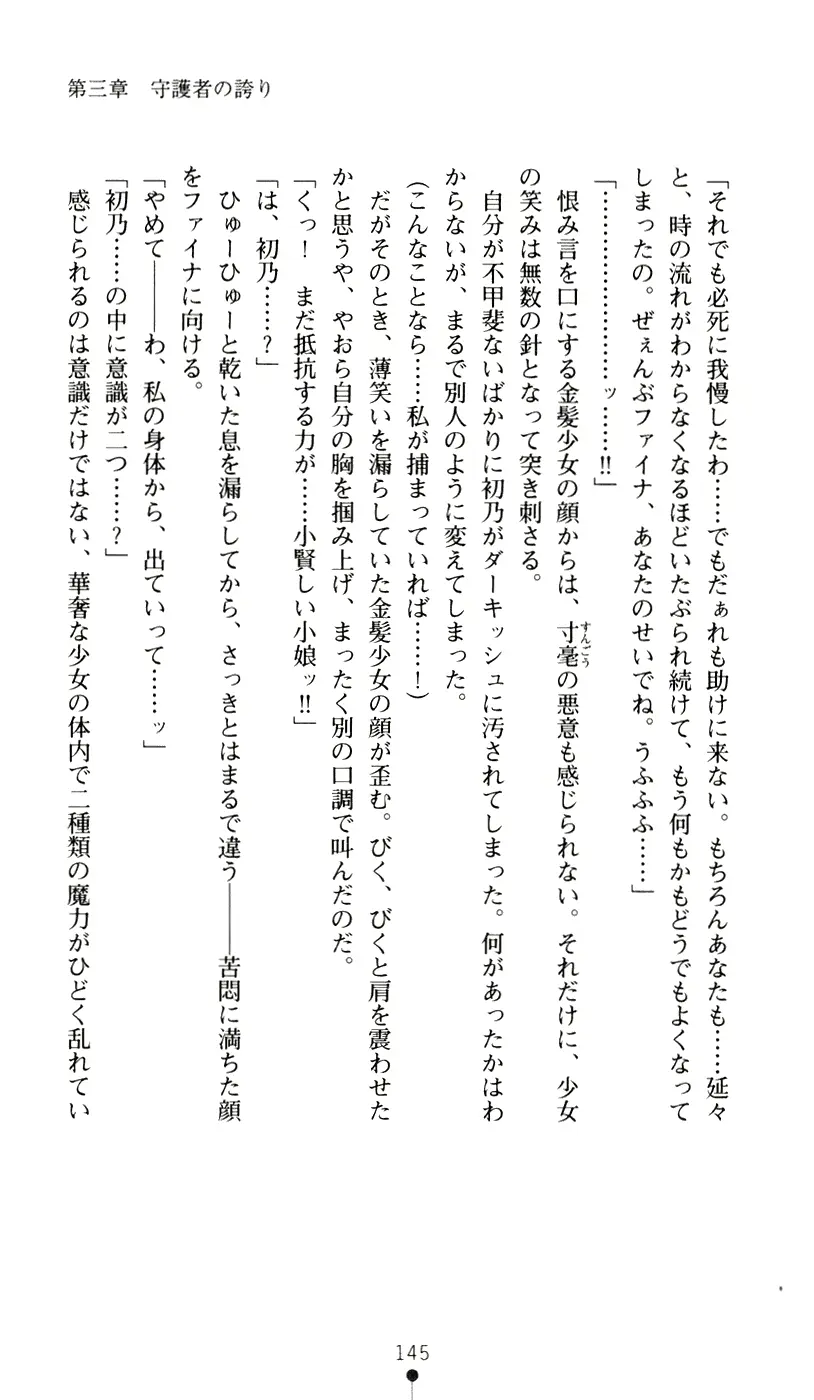 第三章　守護者の誇り
「それでも必死に我慢したわ……でもだぁれも助けに来ない。もちろんあなたも……延々
と、時の流れがわからなくなるほどいたぶられ続けて、もう何もかもどうでもよくなって
しまったの。ぜぇんぶファイナ、あなたのせいでね。うふふふ……」
「…………………ッ……!!」
　恨み言を口にする金髪少女の顔からは、寸毫の悪意も感じられない。それだけに、少女
すんごう
の笑みは無数の針となって突き刺さる。
　自分が不甲斐ないばかりに初乃がダーキッシュに汚されてしまった。何があったかはわ
からないが、まるで別人のように変えてしまった。
（こんなことなら……私が捕まっていれば……！）
　だがそのとき、薄笑いを漏らしていた金髪少女の顔が歪む。びく、びくと肩を震わせた
かと思うや、やおら自分の胸を掴み上げ、まったく別の口調で叫んだのだ。
「くっ！　まだ抵抗する力が……小賢しい小娘ッ!!」
「は、初乃……？」
　ひゅーひゅーと乾いた息を漏らしてから、さっきとはまるで違う――苦悶に満ちた顔
をファイナに向ける。
「やめて――わ、私の身体から、出ていって……ッ」
「初乃……の中に意識が二つ……？」
　感じられるのは意識だけではない、華奢な少女の体内で二種類の魔力がひどく乱れてい
145